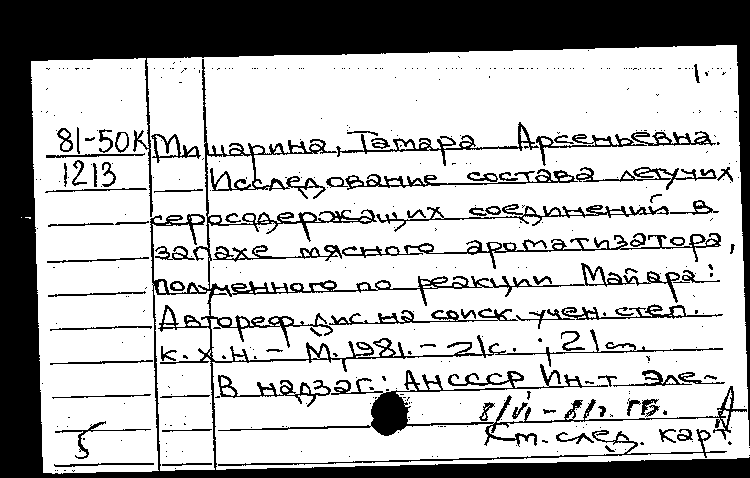 1.
81-50К Мишарина, Тамара Арсеньевна
1213 Исследование состава летучих
серосодержащих соединений в
запахе мясного ароматизатора,
полученного по реакции Майара:
Автореф. дис. на соиск. учен. степ.
к. х. н. - М., 1981. - 21с. ; 21см.
В надзаг.: АНСССР Ин-т эле-
8/VI - 81г. ГБ. А
5 См. след. карт.